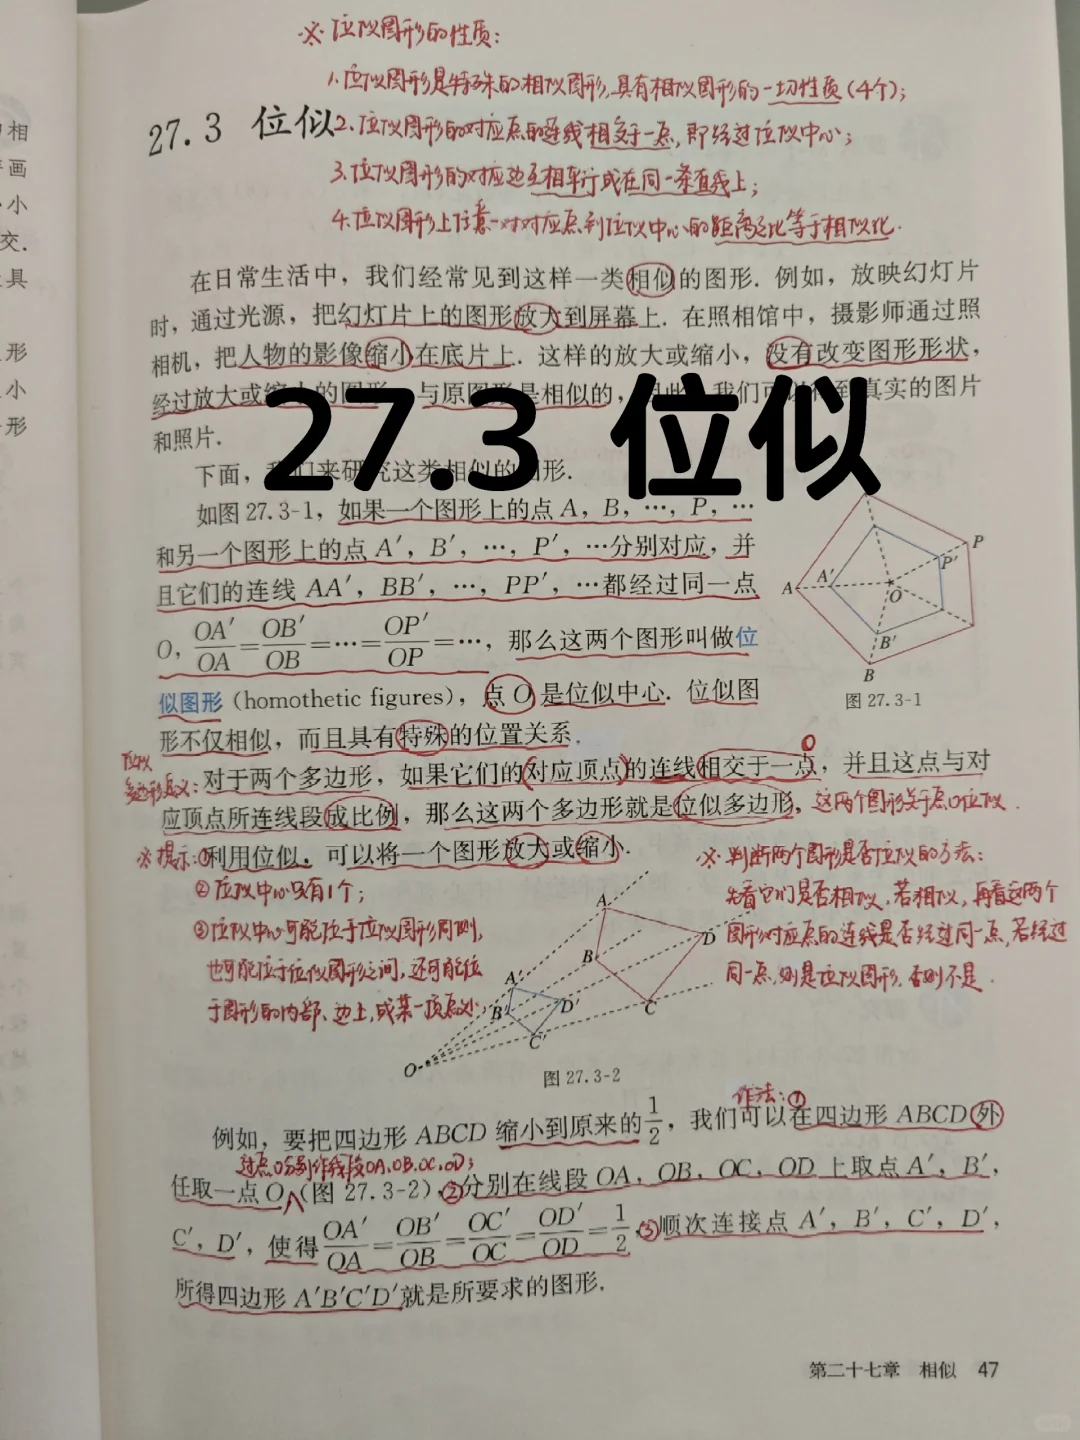 ※ 位似图形的性质：
1.位似图形是特殊的相似图形，具有相似图形的一切性质(4个)；
27.3 位似
2.位似图形的对应点的连线相交于一点，即经过位似中心；
3.位似图形的对应边互相平行或在同一条直线上；
4.位似图形上任意一对对应点到位似中心的距离之比等于相似比.
相
画
小
交.
具
形
小
形
在日常生活中，我们经常见到这样一类相似的图形. 例如，放映幻灯片
时，通过光源，把幻灯片上的图形放大到屏幕上. 在照相馆中，摄影师通过照
相机，把人物的影像缩小在底片上. 这样的放大或缩小，没有改变图形形状，
经过放大或缩小的图形，与原图形是相似的，因此，我们可以得到真实的图片
和照片.
27.3 位似
下面，我们来研究这类相似的图形.
如图 27.3-1，如果一个图形上的点 A，B，…，P，…
和另一个图形上的点 A′，B′，…，P′，…分别对应，并
且它们的连线 AA′，BB′，…，PP′，…都经过同一点
O，OA′/OA=OB′/OB=…=OP′/OP=…，那么这两个图形叫做位
似图形 (homothetic figures)，点 O 是位似中心. 位似图
形不仅相似，而且具有特殊的位置关系.
A A′ O P P′ B′ B
图 27.3-1
位似
多边形定义：
对于两个多边形，如果它们的对应顶点的连线相交于一点，并且这点与对
O
应顶点所连线段成比例，那么这两个多边形就是位似多边形. 这两个图形关于点O位似.
※提示：①利用位似，可以将一个图形放大或缩小.
②位似中心只有1个；
③位似中心可能位于位似图形同侧，
也可能位于位似图形之间，还可能位
于图形的内部、边上，或某一顶点处.
※ 判断两个图形是否位似的方法：
先看它们是否相似，若相似，再看这两个
图形对应点的连线是否经过同一点，若经过
同一点，则是位似图形，否则不是.
A B C D A′ B′ C′ D′ O
图 27.3-2
作法：①
例如，要把四边形 ABCD 缩小到原来的1/2，我们可以在四边形 ABCD 外
过点O分别作线段OA，OB，OC，OD；
任取一点 O (图 27.3-2)，②分别在线段 OA，OB，OC，OD 上取点 A′，B′，
C′，D′，使得OA′/OA=OB′/OB=OC′/OC=OD′/OD=1/2，③顺次连接点 A′，B′，C′，D′，
所得四边形 A′B′C′D′就是所要求的图形.
第二十七章 相似 47